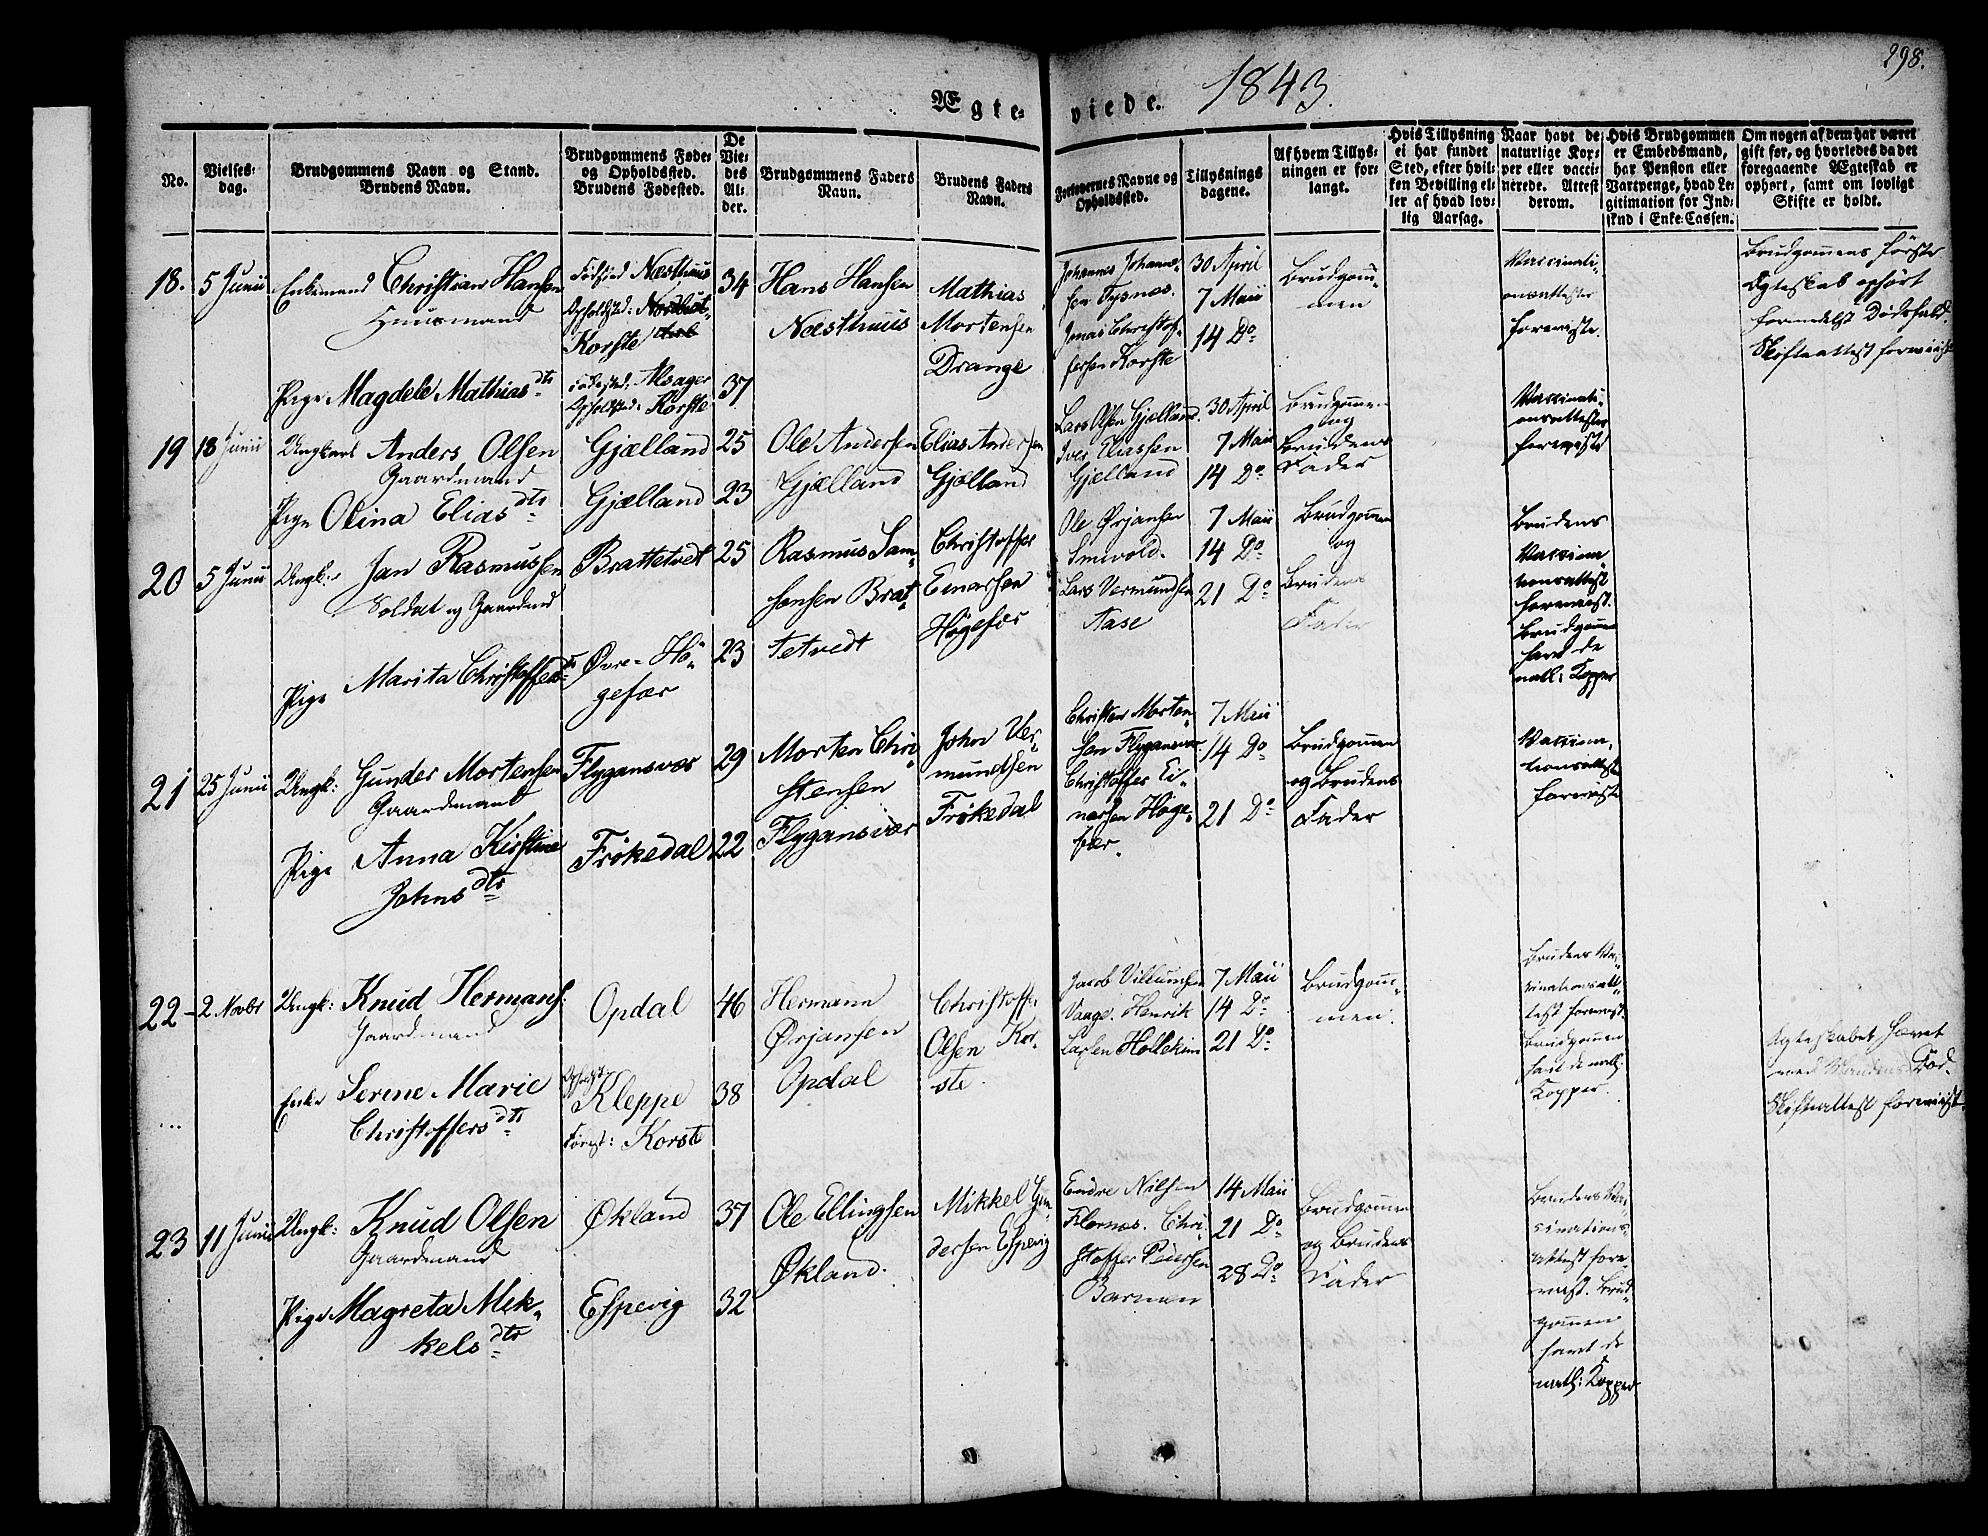 298.
Ægte-viede. 1843.
No.
Vielses-
dag.
Brudgommens Navn og Stand.
Brudens Navn.
Brudgommens Føde-
og Opholdssted.
Brudens Fødested.
De
Vie-
des
Al-
der.
Brudgommens Faders
Navn.
Brudens Faders
Navn.
Forlovernes Navne og
Opholdssted.
Tillysnings
dagene.
Af hvem Tillys-
ningen er for-
langt.
Hvis Tillysning
ei har fundet
Sted, efter hvil-
ken Bevilling el-
ler af hvad lov-
lig Aarsag.
Naar havt de
naturlige Kop-
per eller vacci-
nerede. Attest
derom.
Hvis Brudgommen
er Embedsmand,
har Pension eller
Vartpenge, hvad Le-
gitimation for Ind-
skud i Enke-Cassen.
Om nogen af dem har været
gift før, og hvorledes da det
foregaaende Ægteskab er
ophørt, samt om lovligt
Skifte er holdt.
18.
5 Junii
Enkemand Christian Hansen
Huusmand
Pige Magdele Mathias dtr
Fødsted: Næsthuus
Opholdsted:
Korste
Fødested: Alsager
Opholdsted: Korste
34
37
Hans Hansen
Næsthuus
Mathias
Mortensen
Drange
Johannes Johanne-
sen Tysnæs.
Jonas Christof-
fersen Korste
30 April
7 Maii
14 Do
Brudgom-
men
Vaccinati-
onsattester
foreviiste.
Brudgommens første
Ægteskab ophørt
formedelst Dødsfald.
Skifteattest foreviist
19
18 Junii
Ungkarl Anders Olsen
Gaardmand
Pige Olina Elias dtr
Gjælland
Gjælland
25
23
Ole Andersen
Gjælland
Elias Andersen
Gjælland
Lars Olsen Gjælland.
Iver Eliassen
Gjælland
30 April
7 Maii
14 Do
Brudgommen
og
Brudens
Fader
Vaccinati-
onsattester
foreviste
20
5 Junii
Ungk: Jan Rasmussen
Soldat og Gaardmd
Pige Marita Christoffersdtr
Brattetvedt
Øvre-Hö-
gefær
25
23
Rasmus Sam-
sonsen Brat-
tetvedt
Christoffer
Einarsen
Högefær
Ole Ørjansen
Lars Vermundsen
Aase
7 Maii
14 Do
21 Do
Brudgommen
og
Brudens
Fader
Brudens
Vaccina-
tionsattest
forevist.
Brudgommen
havt de
natl: Kopper
21
25 Junii
Ungk: Gunder Mortensen
Gaardmand
Pige Anna Kirstine
Johns dtr
Flygansvær
Frökedal
29
22
Morten Chri-
stensen
Flygansvær
John Ver-
mundsen
Frökedal
Christen Morten-
sen Flygansvær
Christoffer Ei-
narsen Høge-
fær.
7 Maii
14 Do
21 Do
Brudgommen
og Brudens
Fader
Vaccina-
tionsattester
foreviste
22
2 Novbr
Ungk: Knud Hermans:
Gaardmand
Enke Serene Marie
Christoffers dtr
Opdal
Opholdst:
Kleppe
Fødest: Korste
46
38
Hermann
Ørjansen
Opdal
Christoffer
Olsen Kor-
ste.
Jacob Villumsen
Vaage. Henrik
Larsen Hollekim
7 Maii
14 Do
21 Do
Brudgom-
men.
Brudens Vac-
cinationsatt-
test forevist.
Brudgommen
havt de natl:
Kopper.
Ægteskabet hævet
ved Mandens Død.
Skifteattest foreviist.
23
11 Junii
Ungk: Knud Olsen
Gaardmand
Pige Magreta Mik-
kels dtr
Økland
Espevig
37
32
Ole Ellingsen
Økland.
Mikkel Gun-
dersen Espevig
Endre Nilsen
Flornæs. Chri-
stoffer Pedersen
Barmen
14 Maii
21 Do
28 Do
Brudgommen
og Brudens
Fader
Brudens Vac-
cinations-
attest fore-
viist. Brud-
gommen
havt de
natl: Kopper